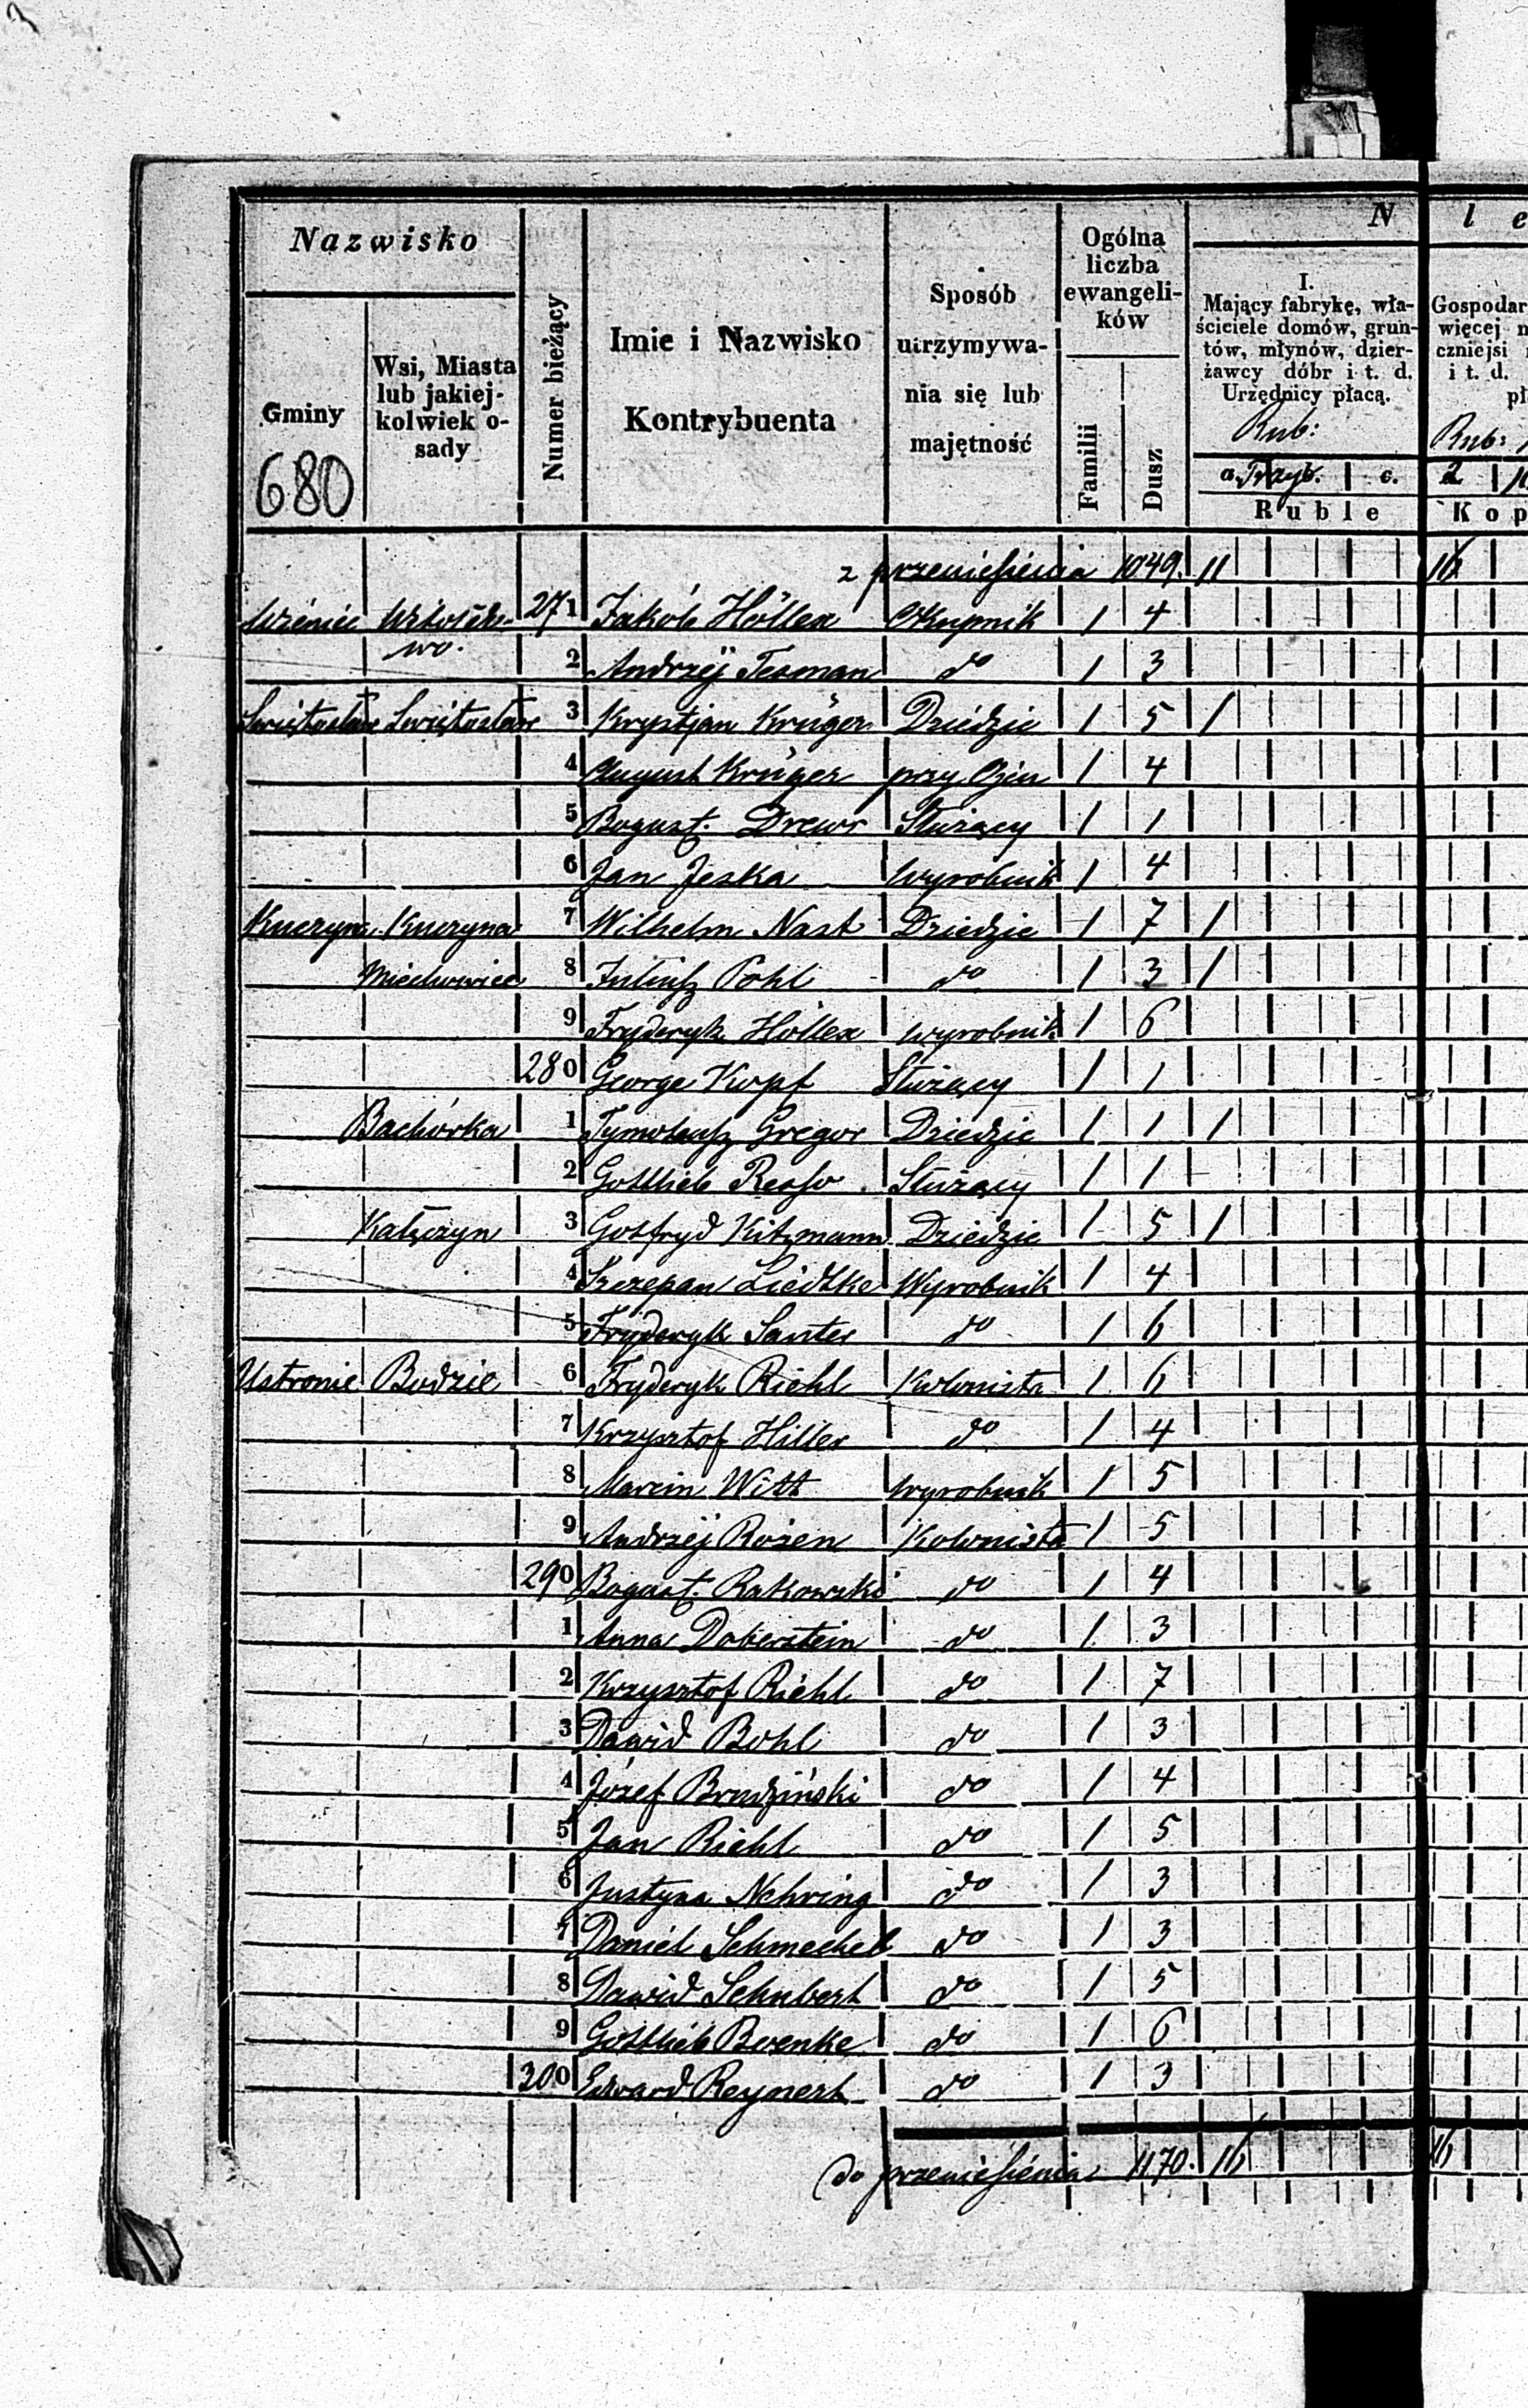 Nazwisko
Gminy
680
Wsi, Miasta
lub jakiej-
kolwiek o-
sady
Numer bieżący
Imie i Nazwisko
Kontrybuenta
Sposób
utrzymywa-
nia się lub
majętność
Ogólna
liczba
ewangeli-
ków
Familii
Dusz
N
I.
Mający fabrykę, wła-
ściciele domów, grun-
tów, młynów, dzier-
żawcy dóbr i t. d.
Urzędnicy płacą.
Rub:
a. c.
Ruble
l e
Gospodar
więcej
czniejsi
i t. d.
Rub:
2
Kop
z przeniesienia 1049. 11 16
271 Jakób Höller Okupnik 1 4
wo.
2 Andrzėj Tesman do 1 3
Swiętosław Swiętosław 3 Krystjan Krüger Dziedzic 1 5 1
4 August Krüger przy Ojcu 1 4
5 Bogusł. Drewr Służący 1 1
6 Jan Jeska wyrobnik 1 4
Kuczyna Kuczyna 7 Wilhelm Nast Dziedzic 1 7 1
Miechowice 8 Juliusz Pohl do 1 3 1
9 Fryderyk Höller wyrobnik 1 6
280 George Kopf Służący 1 1
Bachórka 1 Tymoteusz Gregor Dziedzic 1 1 1
2 Gottlieb Służący 1 1
Kałęczyn 3 Gotfryd Kitzmann Dziedzic 1 5 1
4 Szczepan Liedtke Wyrobnik 1 4
5 Fryderyk Santer do 1 6
Ustronie Bodzie 6 Fryderyk Riehl Kolonista 1 6
7 Krzysztof Hiller do 1 4
8 Marcin Witt wyrobnik 1 5
9 Andrzėj Rosen Kolonista 1 5
290 Bogusł. Rakowski do 1 4
1 Anna Doberstein do 1 3
2 Krzysztof Riehl do 1 7
3 Dawid Bohl do 1 3
4 Józef Brudziński do 1 4
5 Jan Riehl do 1 5
6 Justyna Nehring do 1 3
7 Daniel Schmeckel do 1 3
8 Dawid Schubert do 1 5
9 Gottlieb Boenke do 1 6
300 Edward Reynert do 1 3
do przeniesienia 1170. 16 16